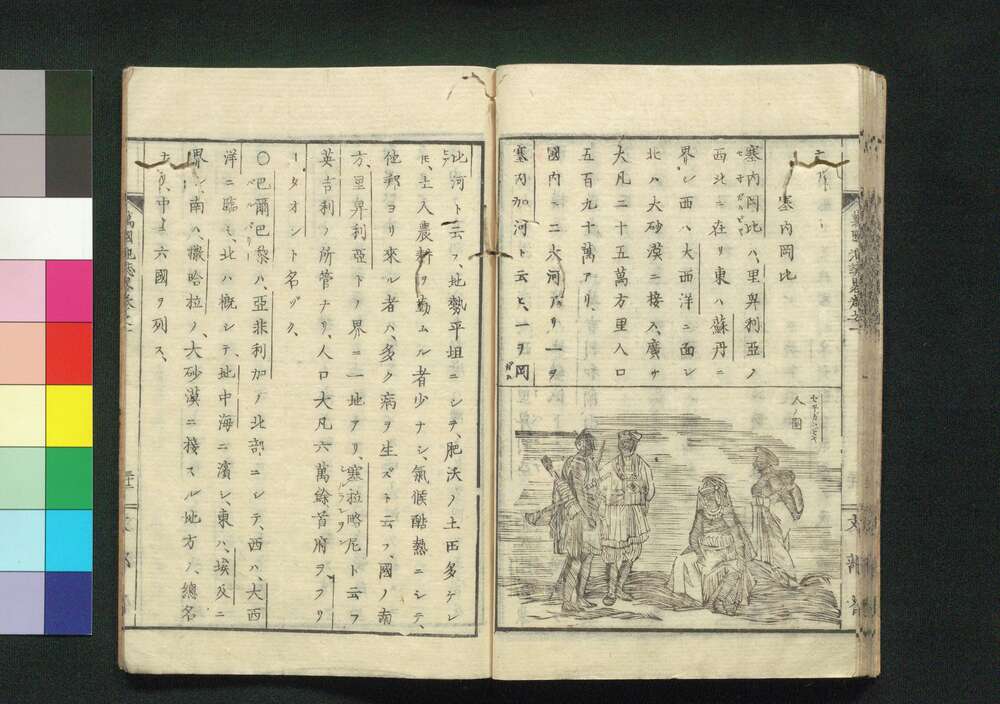 塞内岡比
塞内岡比ハ、里卑利亞ノ
西北ニ在リ東ハ蘇丹ニ
界シ西ハ大西洋ニ面シ
北ハ大砂漠ニ接ス、廣サ
大凡二十五萬方里人口
五百九十萬アリ、
國内ニ二大河アリ一ヲ
塞内加河ト云ヒ、一ヲ岡
人ノ圖
比河ト云フ、地勢平坦ニシテ、肥沃ノ土田多ケレ
𪜈、土人農耕ヲ勤ムル者少ナシ、氣候酷熱ニシテ、
他邦ヨリ來ル者ハ、多ク病ヲ生ズト云フ、國ノ南
方、里卑利亞トノ界ニ一地アリ、塞拉略尼ト云フ
英吉利ノ所管ナリ、人口大凡六萬餘首府ヲフリ
ータオント名ヅク、
〇巴爾巴黎ハ、亞非利加ノ北部ニシテ、西ハ、大西
洋ニ臨ミ、北ハ概シテ、地中海ニ濱シ、東ハ、埃及ニ
界シ、南ハ、撒哈拉ノ、大砂漠ニ接スル地方ノ、總名
ナリ、中ニ六國ヲ列ス、
萬國地誌略卷之二
文部省